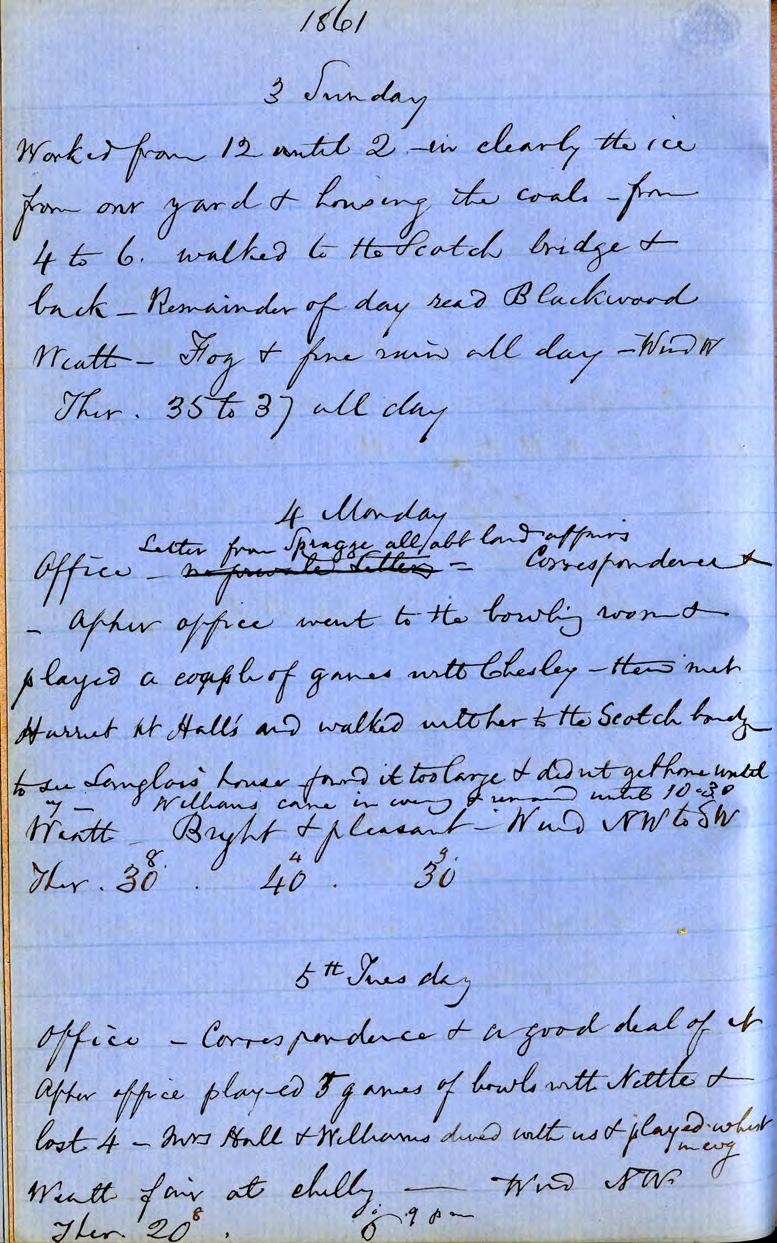 1861
3 Sunday
Worked from 12 until 2 - in clearly the ice
from our yard & housing the coals - from
4 to 6. walked to the Scotch bridge &
back - Remainder of day read Blackwood
Weath - Fog & fine rain all day - Wind W
Ther. 35 to 37 all day
4 Monday
Letter from Spragge all abt land affairs
Office - no private letters = Correspondence &
- After office went to the bowling room &
played a couple of games with Chesley - then met
Harriet at Hall's and walked with her to the Scotch
to see Langlois' house found it too large & did nt get home until
7 - Williams came in & until 10-30
Weath Bright & pleasant - Wind NW to SW
Ther. 30 8. 40 4. 30 9.
5th Tuesday
Office - Correspondence & a good deal of it
After office played 5 games of bowls with Nettle &
lost 4 - Mrs Hall & Williams dined with us & played whist
in evg
Weath fair at chilly - Wind NW.
Ther. 20 8. 9 pm